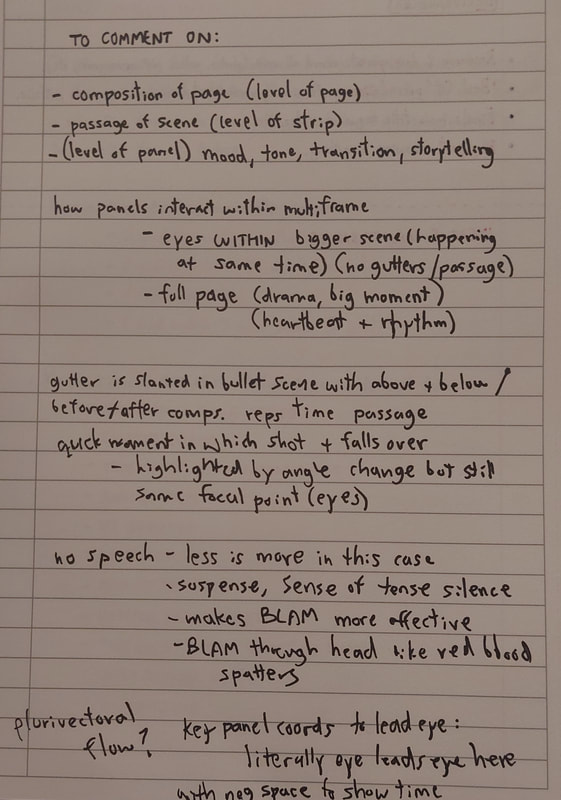 TO COMMENT ON:
- composition of page (level of page)
- passage of scene (level of strip)
- (level of panel) mood, tone, transition, storytelling
how panels interact within multiframe
- eyes WITHIN bigger scene (happening
at same time) (no gutters/passage)
- full page (drama, big moment)
(heartbeat + rhythm)
gutter is slanted in bullet scene with above + below /
before/after comps. reps time passage
quick moment in which shot + falls over
- highlighted by angle change but still
same focal point (eyes)
no speech - less is more in this case
- suspense, sense of tense silence
- makes BLAM more effective
- BLAM through head like red blood
spatters
plurivectoral
flow?
key panel coords to lead eye:
literally eye leads eye here
with neg space to show time